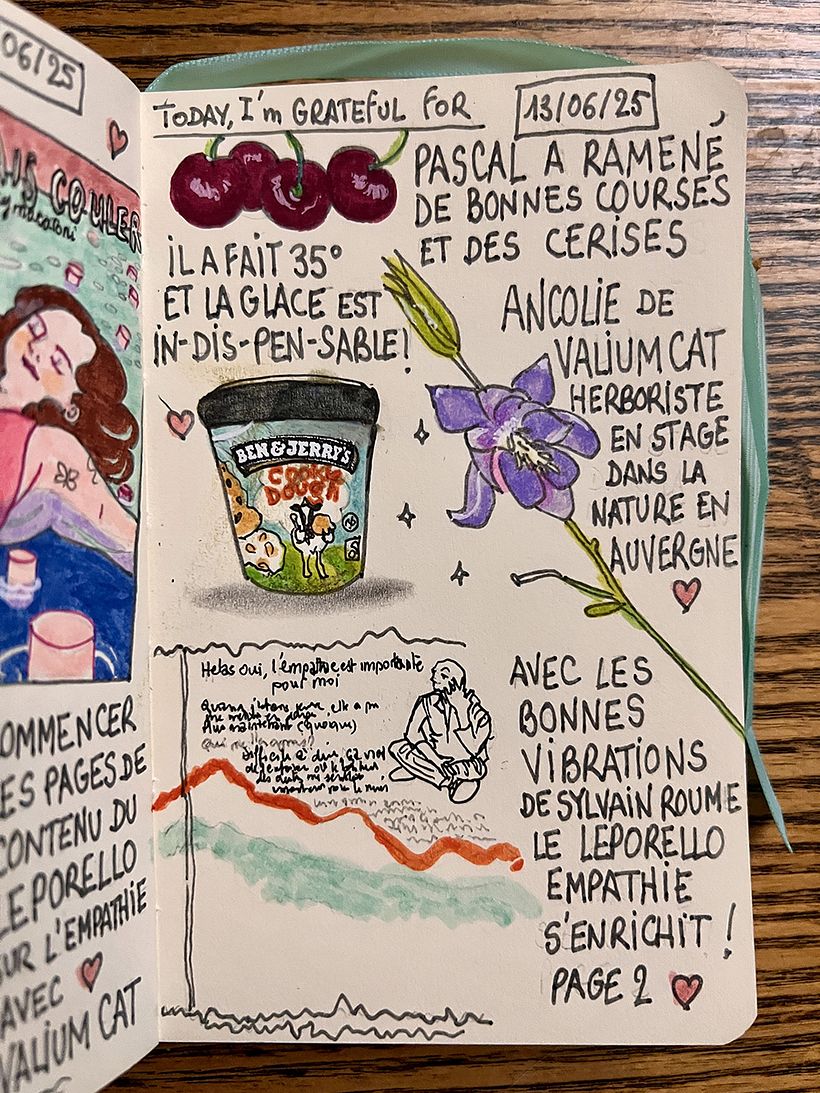 06/25
IS COULER
OMMENCER
ES PAGES DE
CONTENU DU
LEPORELLO
SUR L'EMPATHIE
AVEC
VALIUM CAT
TODAY, I'm GRATEFUL FOR
13/06/25
PASCAL A RAMENÉ
DE BONNES COURSES
ET DES CERISES
iL A FAIT 35°
ET LA GLACE EST
iN-DIS-PEN-SABLE!
BEN & JERRY'S
COOKIE
DOUGH
ANCOLIE DE
VALIUM CAT
HERBORISTE
EN STAGE
DANS LA
NATURE EN
AUVERGNE
Helas oui, l'empathie est importante
pour moi
AVEC LES
BONNES
ViBRATIONS
DE SYLVAIN ROUME
LE LEPORELLO
EMPATHIE
S'ENRICHIT !
PAGE 2